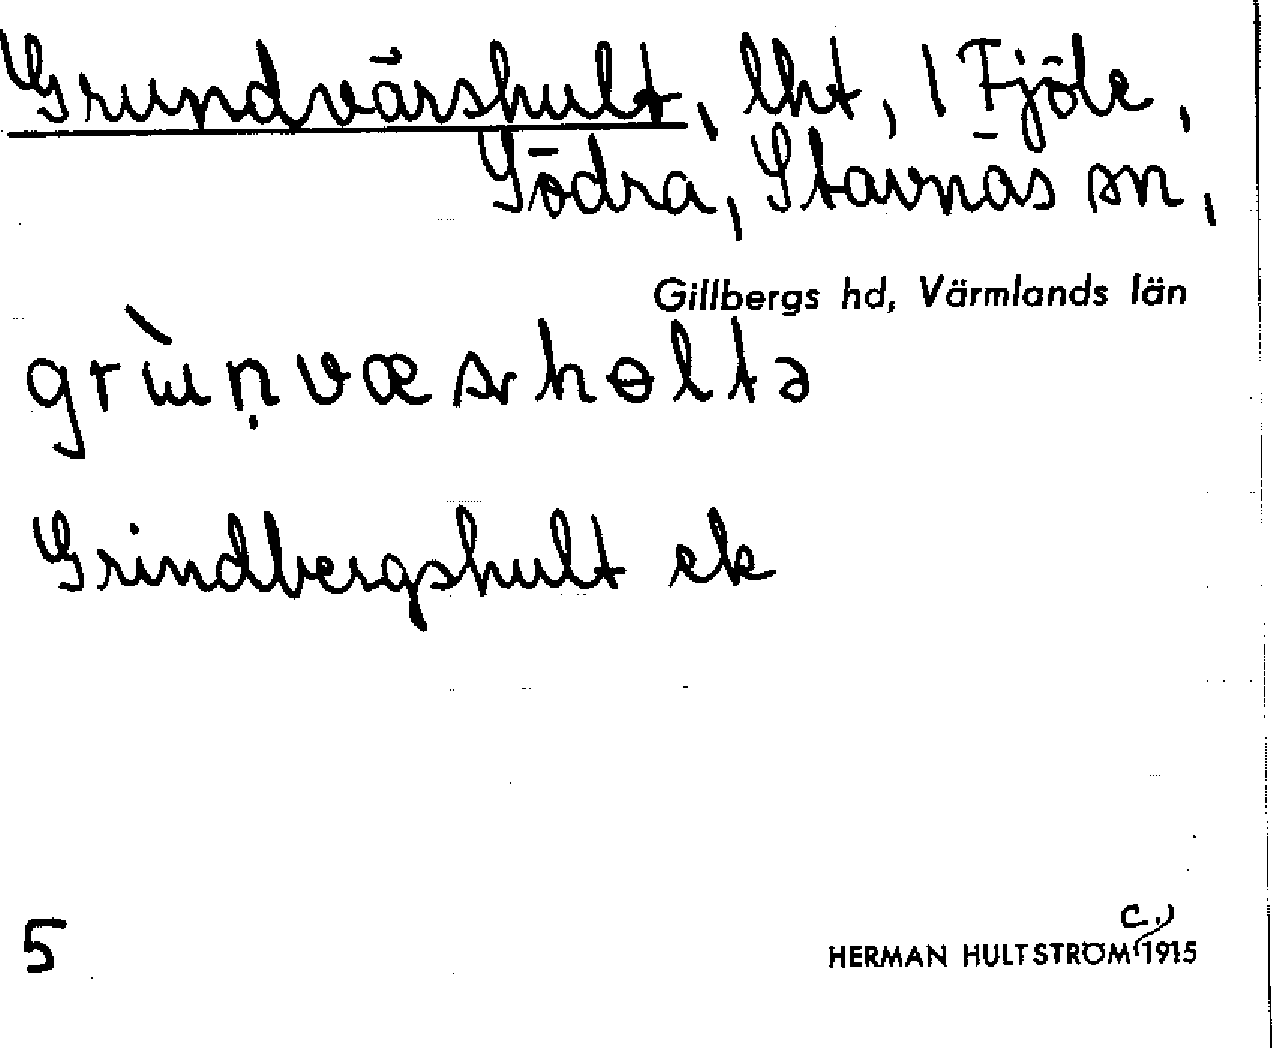 Grundvärshult, lht, 1 Fjöle,
Södra, Stavnäs sn,
Gillbergs hd, Värmlands län
grɯ̀ṇvœsrhɵltə
Grindbergshult ek
5
c.
HERMAN HULTSTRÖM 1915